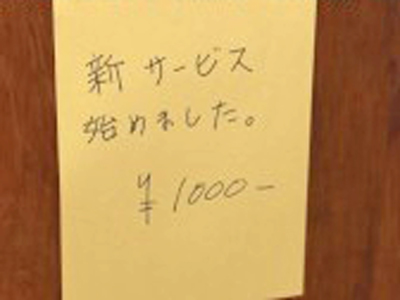 新サービス
始めました。
¥1000-